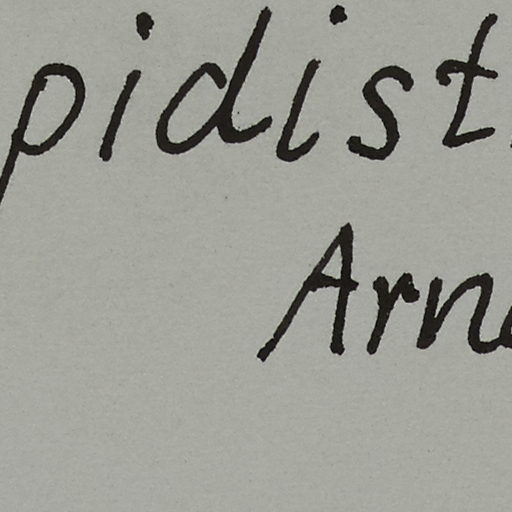 pidist.
Arn